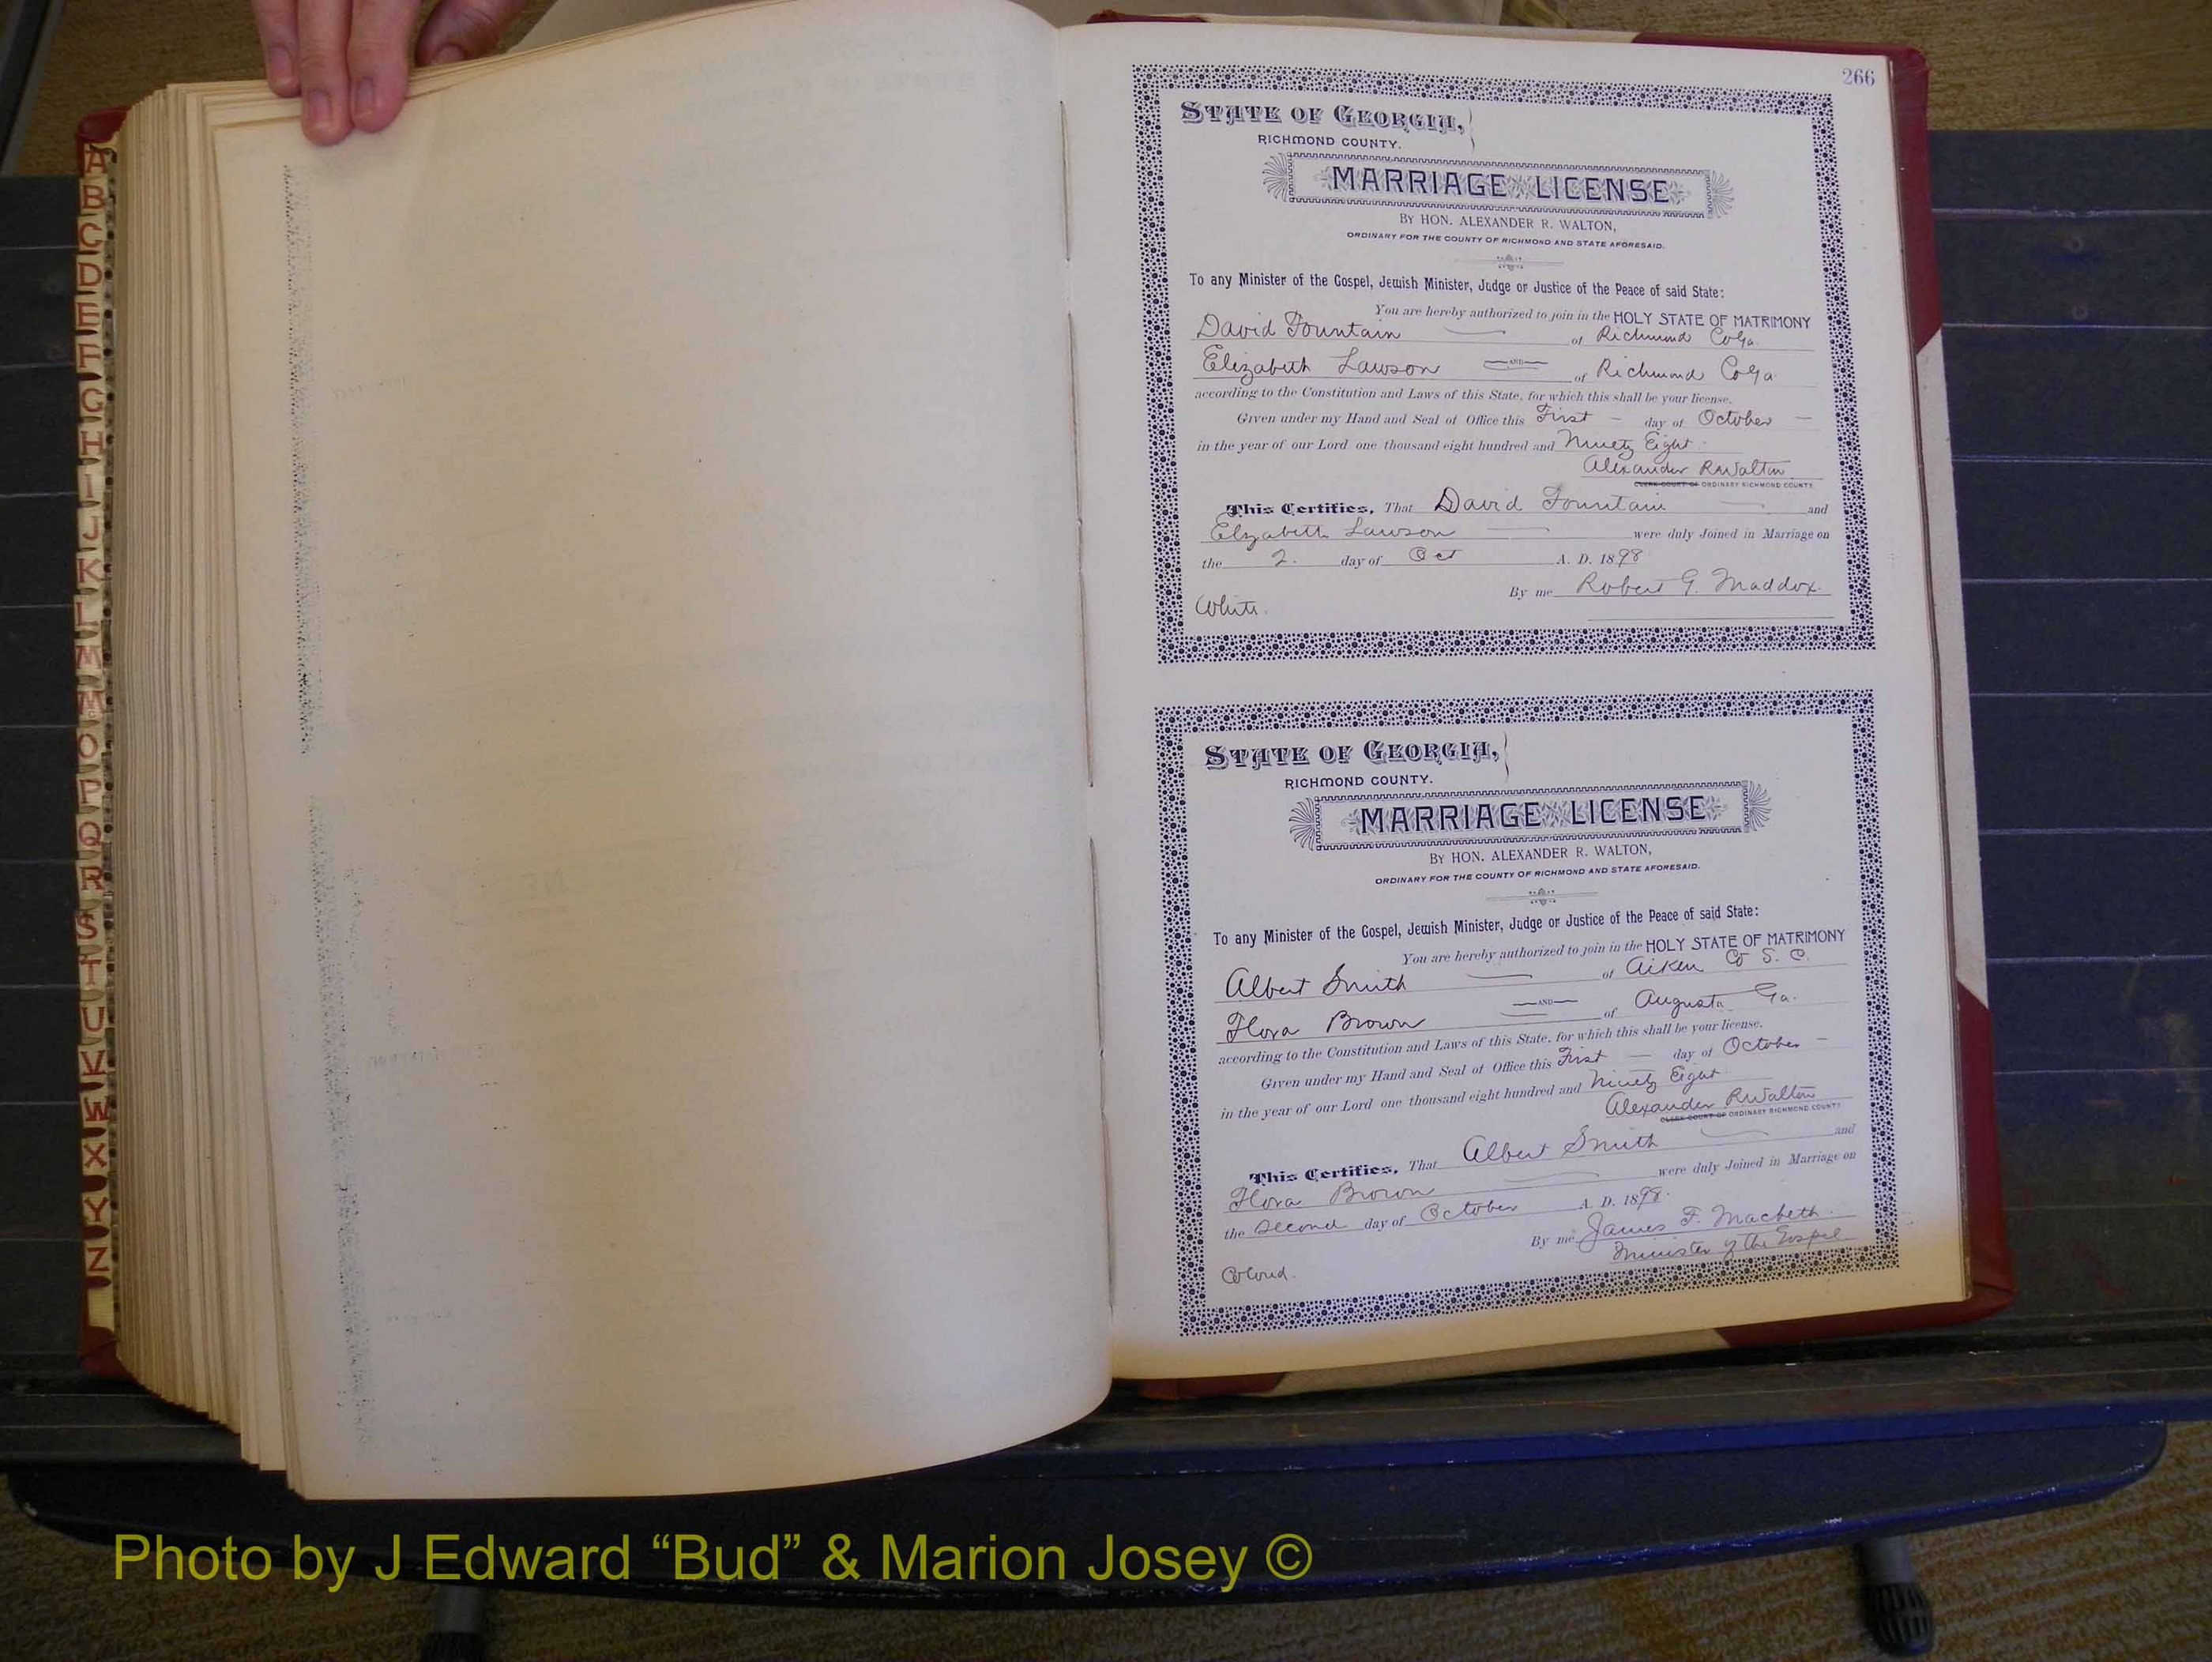 A
B
C
D
E
F
G
H
I
J
K
L
M
Mc
O
P
Q
R
S
T
U
V
W
X
Y
Z
266
STATE OF GEORGIA,
RICHMOND COUNTY.
MARRIAGE LICENSE
BY HON. ALEXANDER R. WALTON,
ORDINARY FOR THE COUNTY OF RICHMOND AND STATE AFORESAID.
To any Minister of the Gospel, Jewish Minister, Judge or Justice of the Peace of said State:
You are hereby authorized to join in the HOLY STATE OF MATRIMONY
David Fountain of Richmond Co Ga.
AND
Elizabeth Lawson of Richmond Co Ga
according to the Constitution and Laws of this State, for which this shall be your license.
Given under my Hand and Seal of Office this First day of October
in the year of our Lord one thousand eight hundred and Ninety Eight
Alexander R Walton
CLERK COURT OF ORDINARY RICHMOND COUNTY
This Certifies, That David Fountain and
Elizabeth Lawson were duly Joined in Marriage on
the 2. day of Oct A. D. 1898
By me Robert G. Maddox.
White.
STATE OF GEORGIA,
RICHMOND COUNTY.
MARRIAGE LICENSE
BY HON. ALEXANDER R. WALTON,
ORDINARY FOR THE COUNTY OF RICHMOND AND STATE AFORESAID.
To any Minister of the Gospel, Jewish Minister, Judge or Justice of the Peace of said State:
You are hereby authorized to join in the HOLY STATE OF MATRIMONY
Albert Smith of Aiken Co S. C.
AND
Flora Brown of Augusta Ga.
according to the Constitution and Laws of this State, for which this shall be your license.
Given under my Hand and Seal of Office this First day of October
in the year of our Lord one thousand eight hundred and Ninety Eight
Alexander R Walton
CLERK COURT OF ORDINARY RICHMOND COUNTY
This Certifies, That Albert Smith and
Flora Brown were duly Joined in Marriage on
the Second day of October A. D. 1898.
By me James F. Macbeth.
Minister of the Gospel
Colored.
Photo by J Edward “Bud” & Marion Josey ©